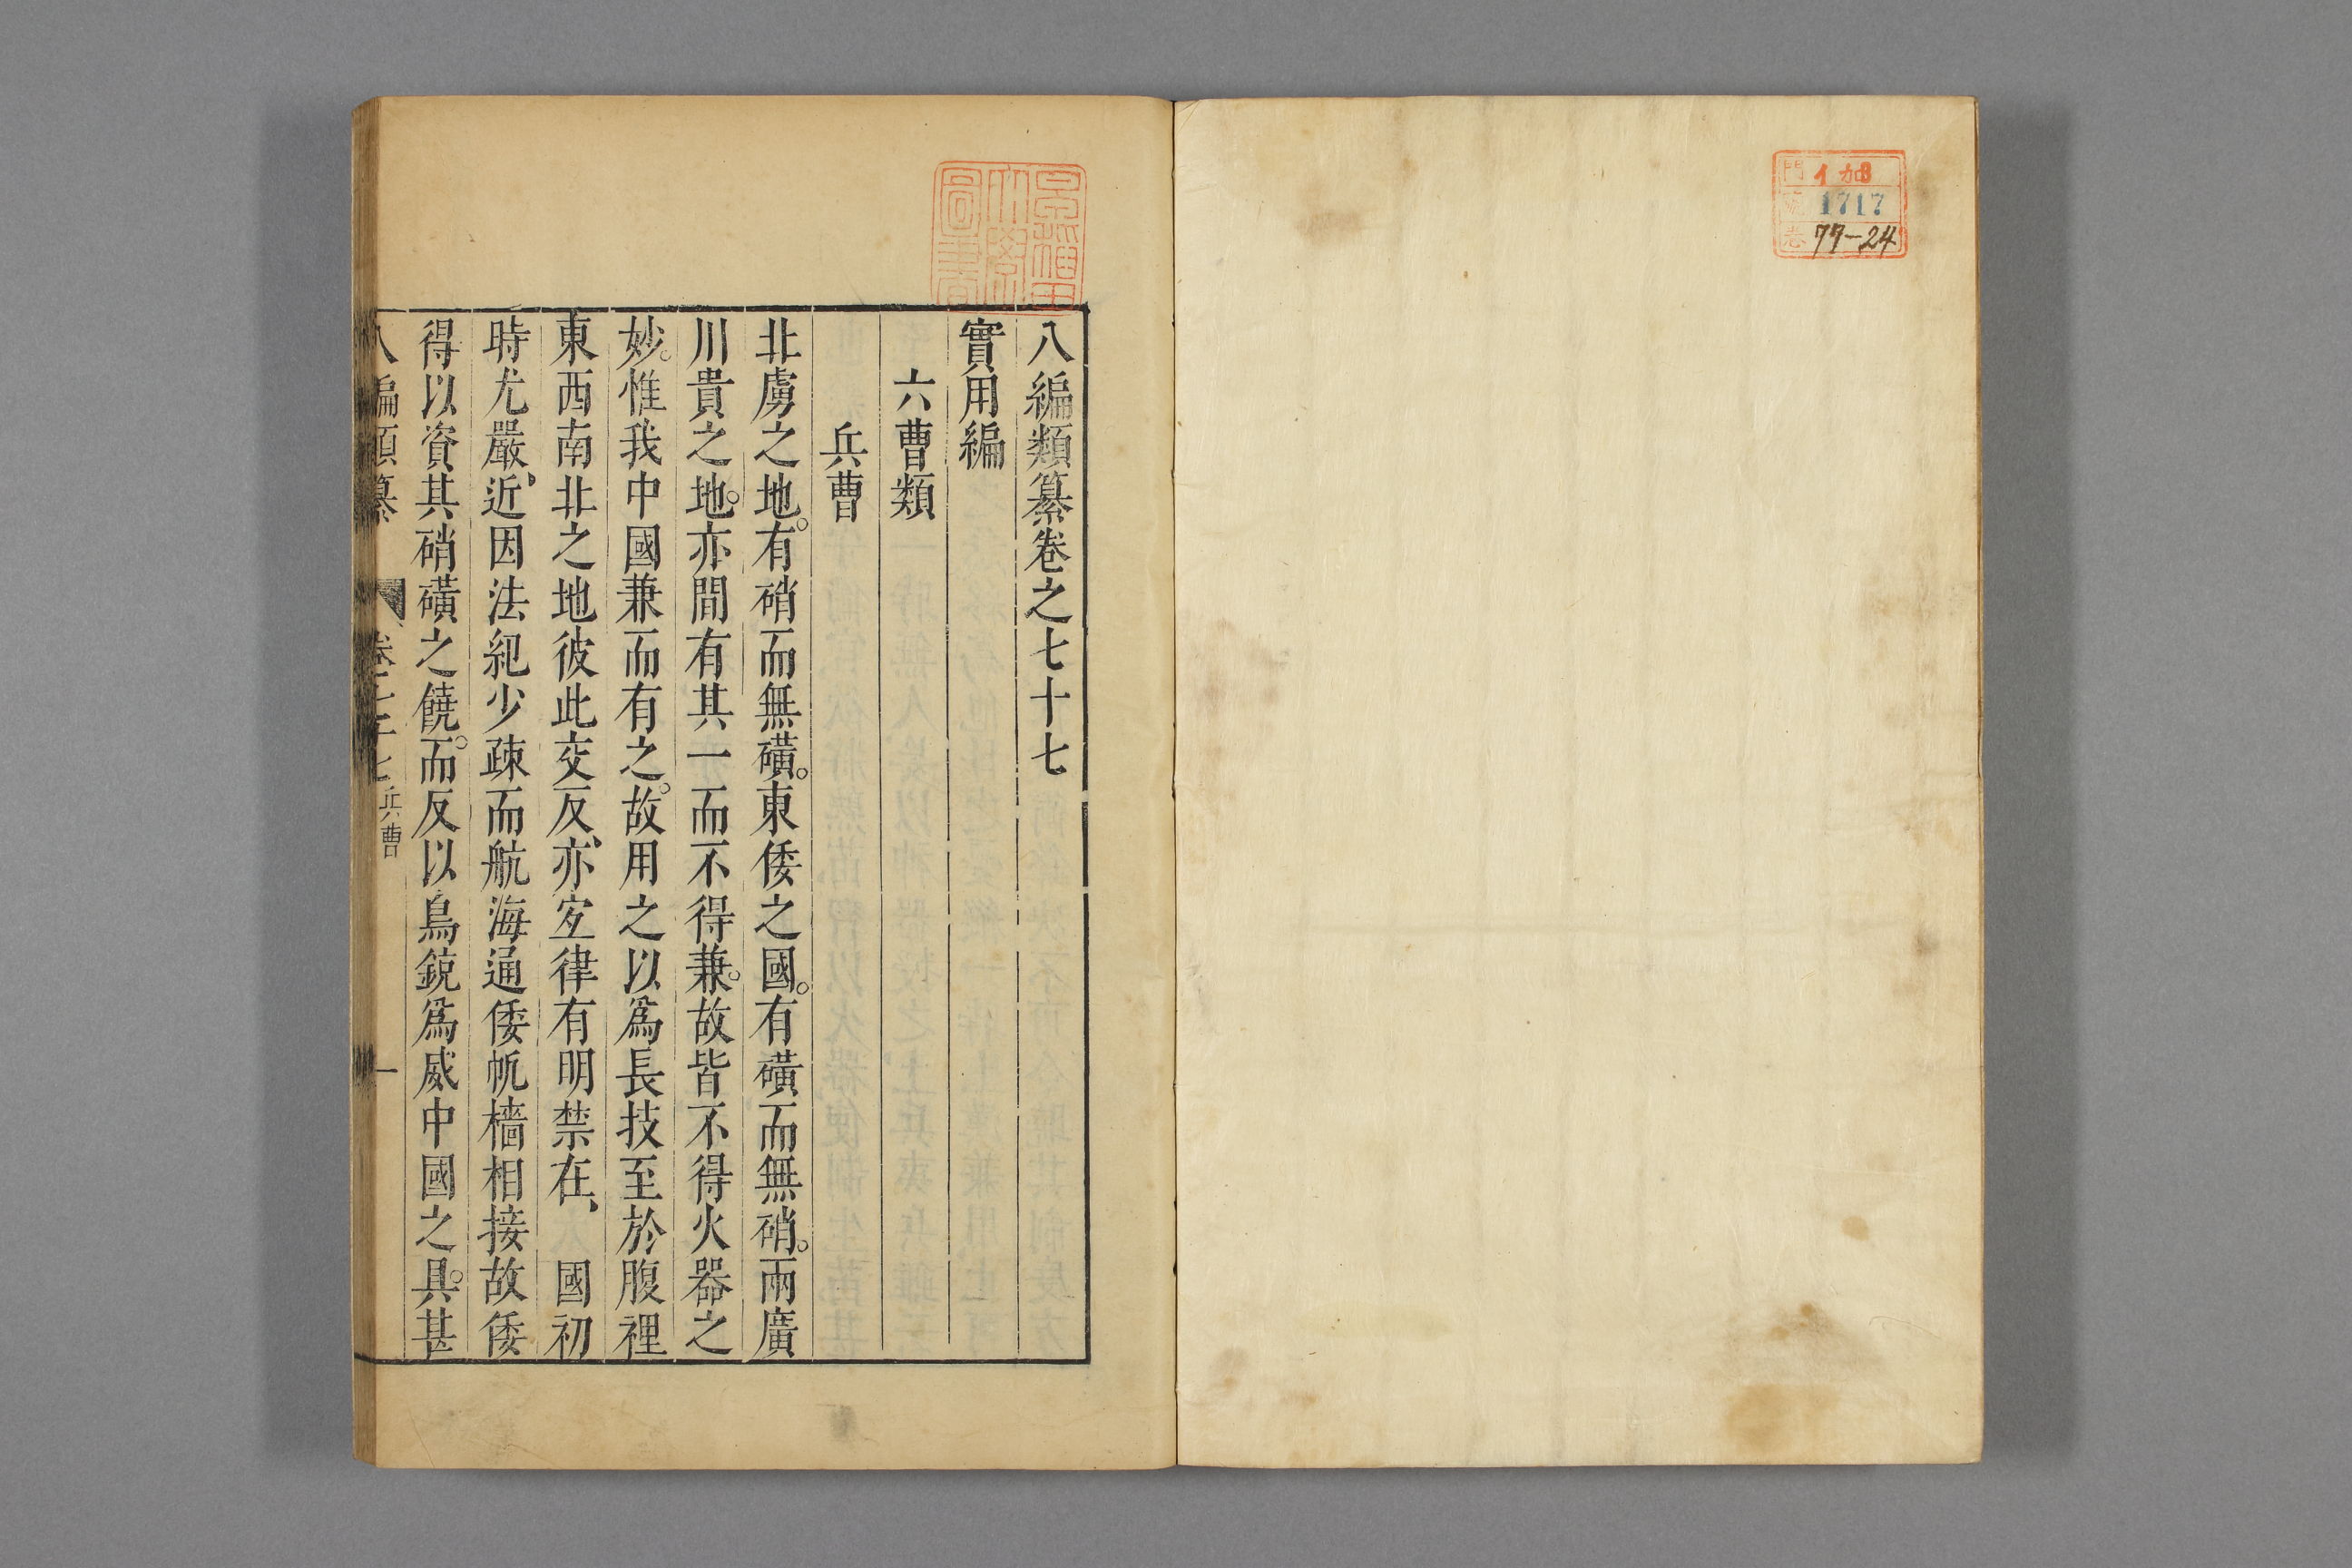 門 イ加3
號 1717
卷 77-24
八編類纂卷之七十七
實用編
六曹類
兵曹
北虜之地。有硝而無磺。東倭之國。有磺而無硝。兩廣
川貴之地。亦間有其一而不得兼。故皆不得火器之
妙。惟我中國兼而有之。故用之以爲長技至於腹裡
東西南北之地彼此交反、亦㝎律有明禁在、國初
時尤嚴、近因法紀少疎而航海通倭帆檣相接故倭
得以資其硝磺之饒。而反以鳥銃爲威中國之具。甚
八編類纂 卷之七十七 兵曹 一